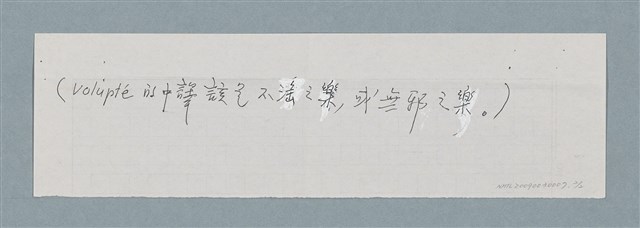 （Volupté 的中譯該是不淫之樂，或無邪之樂。）